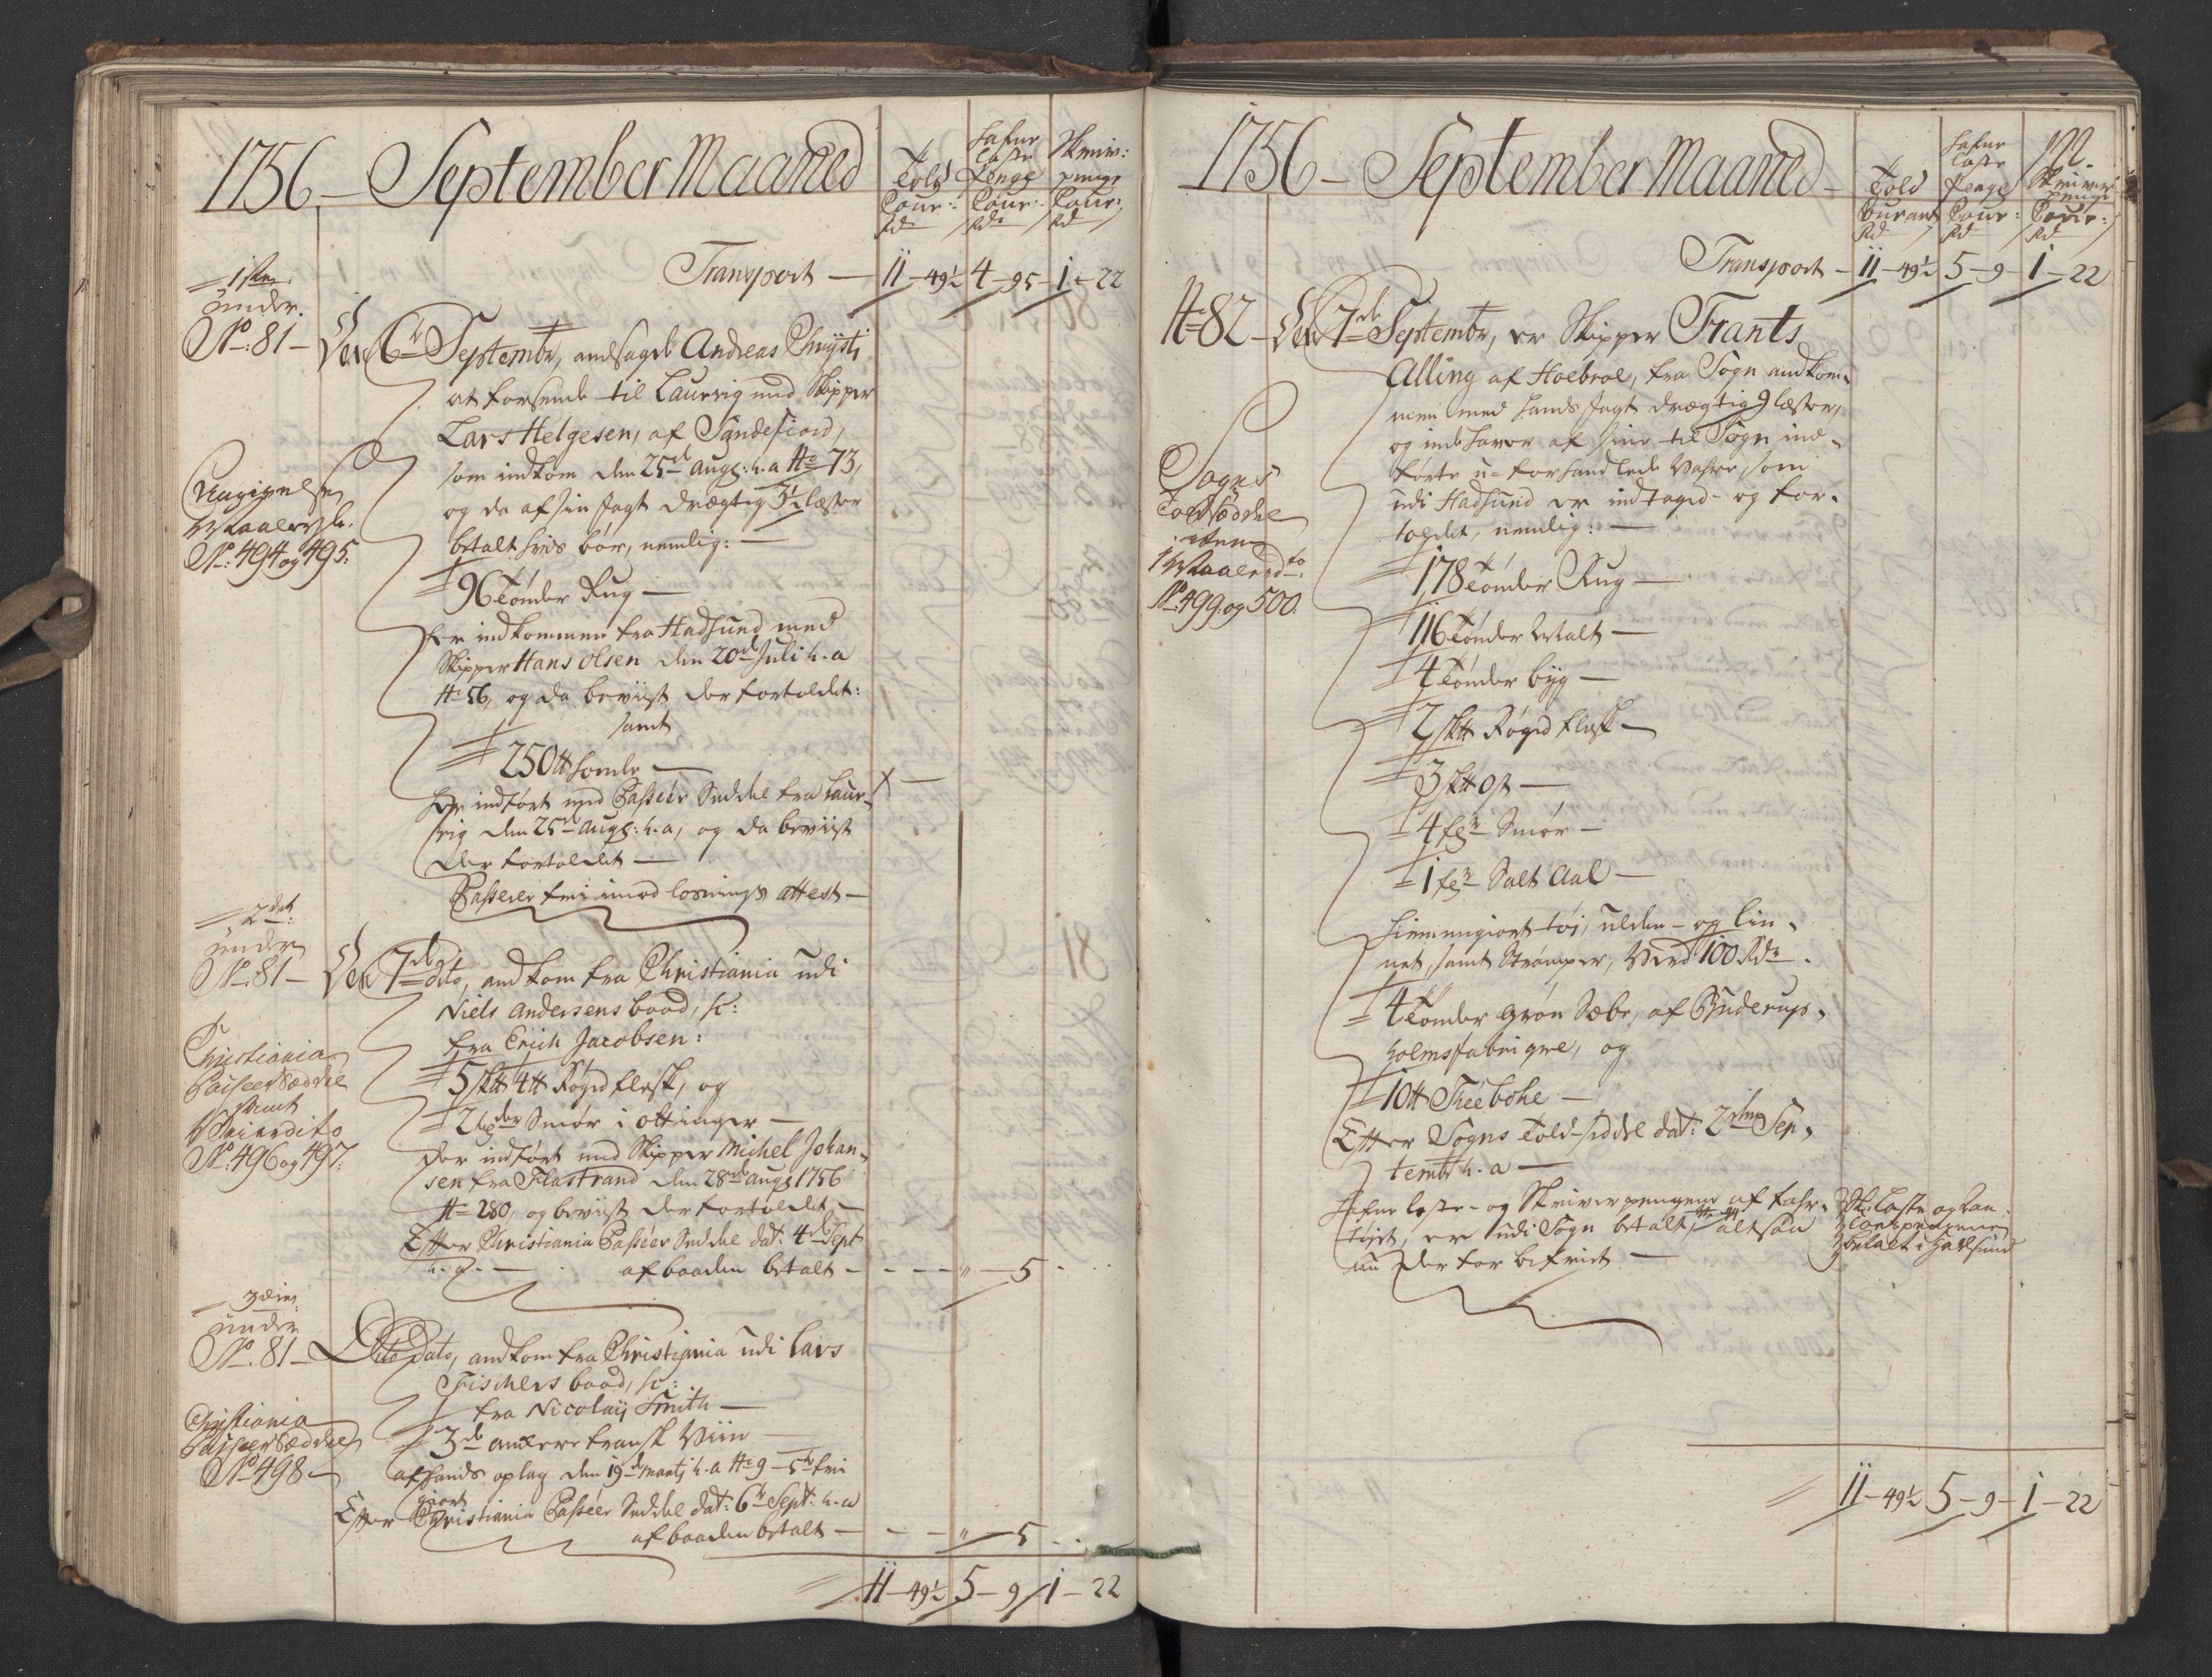 1756 – September Maaned
Told
Cour:
Rd
Hafne
Laste
Penge
Cour:
Rdr
Skriver:
penge
Cour:
Rd
Transport — 11 – 49½ 4 – 95 – 1 – 22
1ste
under
No. 81 –
Den 6te Septembr, andsagde Andreas
at forsende til Laurvig med Skipper
Lars Helgesen, af Sandefiord,
som indkom den 25de Augs: h. a No 73,
og da af sin Jagt drægtig 3½ læster
betalt hvis bør, nemlig: —
No: 494 og 495:
96 Tønder Rug —
er indkommen fra Hadsund med
Skipper Hans Olsen den 20de Juli h. a
No 56, og da beviist der fortoldet:
samt
250 ℔ Homle —
her indført med Passeer Seddel fra Laur-
vig den 25de Augs: h. a, og da beviist
der fortoldet —
Passerer frie imod losnings attest —
2det
under
No. 81 –
Den 7de dito, andkom fra Christiania udi
Niels Andersens baad, sc:
fra Erich Jacobsen:
Christiania
Passeer Seddel
samt
No. 496 og 497:
5 sk℔ 4 ℔ Røged flesk, og
2 Smør i ottinger —
der indført med Skipper Michel Johan-
sen fra Flastrand den 28de Augs 1756
No 280, og beviist der fortoldet —
Efter Christiania Passeer Seddel dat: 4de Sept
h. a. — af baaden betalt – – – – " – 5 . . .
3die
under
No. 81 –
Dito Dato, andkom fra Christiania udi Lars
Fischers baad, sc:
fra Nicolaij Smith —
Christiania
Passeer Seddel
No 498 –
3de ankere fransk Viin —
af hands oplag den 19de Martj h. a No 9 – 5te frie
giort
Efter Christiania Passeer Seddel dat: 6te Sept: h. a
af baaden betalt – – – " – 5 . .
11 – 49½ 5 – 9 1 – 22
1756 – September Maaned –
Told
Curant
Rd
Hafne
Laste
Penge
Cour:
Rd
122.
Skriver
Penge
Cour:
Rd
Transport – 11 – 49½ 5 – 9 – 1 – 22
No 82 – Den 7de Septembr, er Skipper Frants
Alling af Hoebroe, fra Sogn andkom-
men med hands Jagt drægtig 9 læster,
og inde haver af sine til Sogn ind-
førte u-forhandlede Vahre, som
udi Hadsund er indtaged- og for-
toldet, nemlig: —
Sogns
Told Seddel
No. 499. og 500.
178 Tønder Rug —
116 Tønder Malt —
4 Tønder byg —
2 sk℔ Røged flesk —
3 sk℔ Ost —
4 Smør —
1 Salt Aal —
Hiemmegiort tøi, ulden- og lin-
net, samt Strømper, Værd 100 Rdr.
4 Tønder grøn Sæbe, af Buderup-
holms fabriqve, og
10 ℔ Theebohe —
Efter Sogns Told-seddel dat: 2den Sep-
tembr h. a —
Hafne laste- og Skriver pengene af fahr-
tøjet, er udi Sogn betalt, altsaa
nu der for befriet —
betalt i Hadsund
11 – 49½ 5 – 9 – 1 – 22